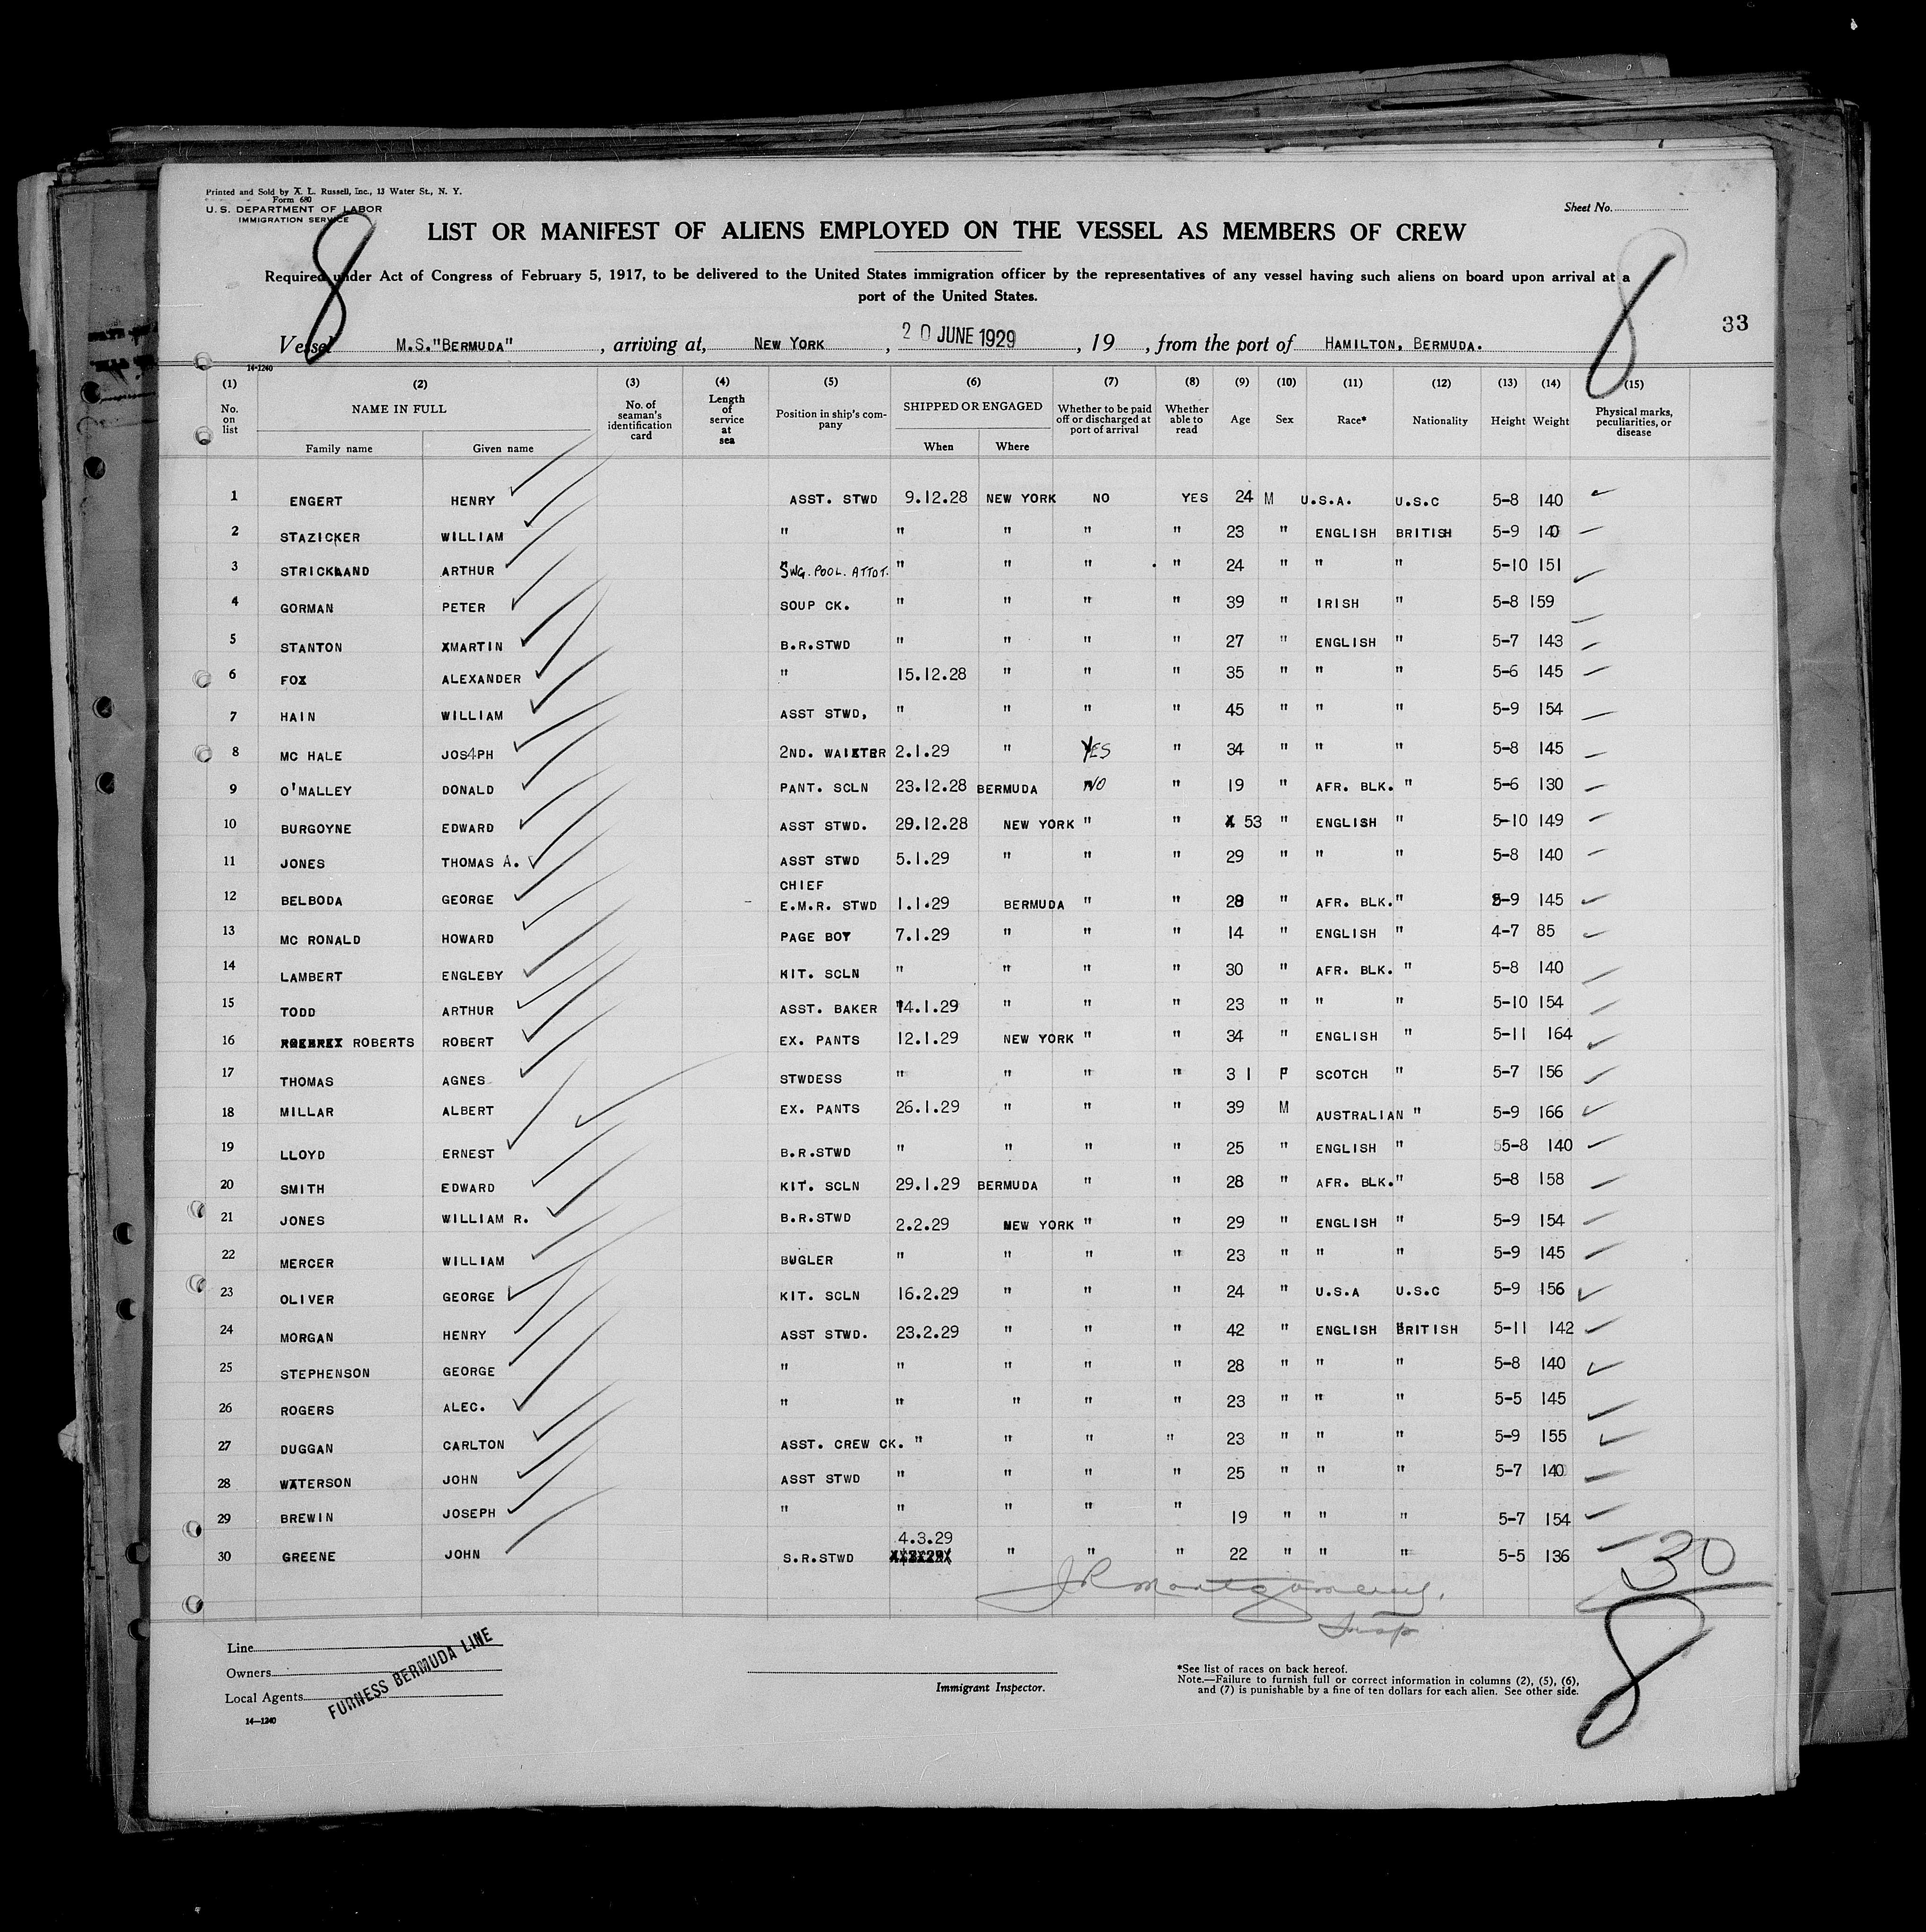 Printed and Sold by A. L. Russell, Inc., 13 Water St., N. Y.
Form 680
U. S. DEPARTMENT OF LABOR
IMMIGRATION SERVICE
Sheet No.
8
8
LIST OR MANIFEST OF ALIENS EMPLOYED ON THE VESSEL AS MEMBERS OF CREW
Required under Act of Congress of February 5, 1917, to be delivered to the United States immigration officer by the representatives of any vessel having such aliens on board upon arrival at a
port of the United States.
33
Vessel M.S."BERMUDA" , arriving at, NEW YORK , 20 JUNE 1929 , 19 , from the port of HAMILTON, BERMUDA.
14-1240
(1) (2) (3) (4) (5) (6) (7) (8) (9) (10) (11) (12) (13) (14) (15)
No. on list NAME IN FULL Family name Given name No. of seaman's identification card Length of service at sea Position in ship's company SHIPPED OR ENGAGED When Where Whether to be paid off or discharged at port of arrival Whether able to read Age Sex Race* Nationality Height Weight Physical marks, peculiarities, or disease
1 ENGERT HENRY ASST. STWD 9.12.28 NEW YORK NO YES 24 M U.S.A. U.S.C 5-8 140
2 STAZICKER WILLIAM " " " " " 23 " ENGLISH BRITISH 5-9 140
3 STRICKLAND ARTHUR SWG. POOL. ATTDT. " " " " 24 " " " 5-10 151
4 GORMAN PETER SOUP CK. " " " " 39 " IRISH " 5-8 159
5 STANTON XMARTIN B.R.STWD " " " " 27 " ENGLISH " 5-7 143
6 FOX ALEXANDER " 15.12.28 " " " 35 " " " 5-6 145
7 HAIN WILLIAM ASST STWD, " " " " 45 " " " 5-9 154
8 MC HALE JOS4PH 2ND. WAIETER 2.1.29 " YES " 34 " " " 5-8 145
9 O'MALLEY DONALD PANT. SCLN 23.12.28 BERMUDA NO " 19 " AFR. BLK. " 5-6 130
10 BURGOYNE EDWARD ASST STWD. 29.12.28 NEW YORK " " 53 " ENGLISH " 5-10 149
11 JONES THOMAS A. ASST STWD 5.1.29 " " " 29 " " " 5-8 140
12 BELBODA GEORGE CHIEF E.M.R. STWD 1.1.29 BERMUDA " " 28 " AFR. BLK. " 5-9 145
13 MC RONALD HOWARD PAGE BOY 7.1.29 " " " 14 " ENGLISH " 4-7 85
14 LAMBERT ENGLEBY KIT. SCLN " " " " 30 " AFR. BLK. " 5-8 140
15 TODD ARTHUR ASST. BAKER 14.1.29 " " " 23 " " " 5-10 154
16 ROBERTS ROBERT EX. PANTS 12.1.29 NEW YORK " " 34 " ENGLISH " 5-11 164
17 THOMAS AGNES STWDESS " " " " 31 F SCOTCH " 5-7 156
18 MILLAR ALBERT EX. PANTS 26.1.29 " " " 39 M AUSTRALIAN " 5-9 166
19 LLOYD ERNEST B.R.STWD " " " " 25 " ENGLISH " 55-8 140
20 SMITH EDWARD KIT. SCLN 29.1.29 BERMUDA " " 28 " AFR. BLK. " 5-8 158
21 JONES WILLIAM R. B.R.STWD 2.2.29 NEW YORK " " 29 " ENGLISH " 5-9 154
22 MERCER WILLIAM BUGLER " " " " 23 " " " 5-9 145
23 OLIVER GEORGE KIT. SCLN 16.2.29 " " " 24 " U.S.A U.S.C 5-9 156
24 MORGAN HENRY ASST STWD. 23.2.29 " " " 42 " ENGLISH BRITISH 5-11 142
25 STEPHENSON GEORGE " " " " " 28 " " " 5-8 140
26 ROGERS ALEC. " " " " " 23 " " " 5-5 145
27 DUGGAN CARLTON ASST. CREW CK. " " " " 23 " " " 5-9 155
28 WATERSON JOHN ASST STWD " " " " 25 " " " 5-7 140
29 BREWIN JOSEPH " " " " " 19 " " " 5-7 154
30 GREENE JOHN S.R.STWD 4.3.29 " " " 22 " " " 5-5 136
30
8
J R Montgomery,
Insp
Line
Owners
Local Agents
FURNESS BERMUDA LINE
14—1240
Immigrant Inspector.
*See list of races on back hereof.
Note.—Failure to furnish full or correct information in columns (2), (5), (6),
and (7) is punishable by a fine of ten dollars for each alien. See other side.